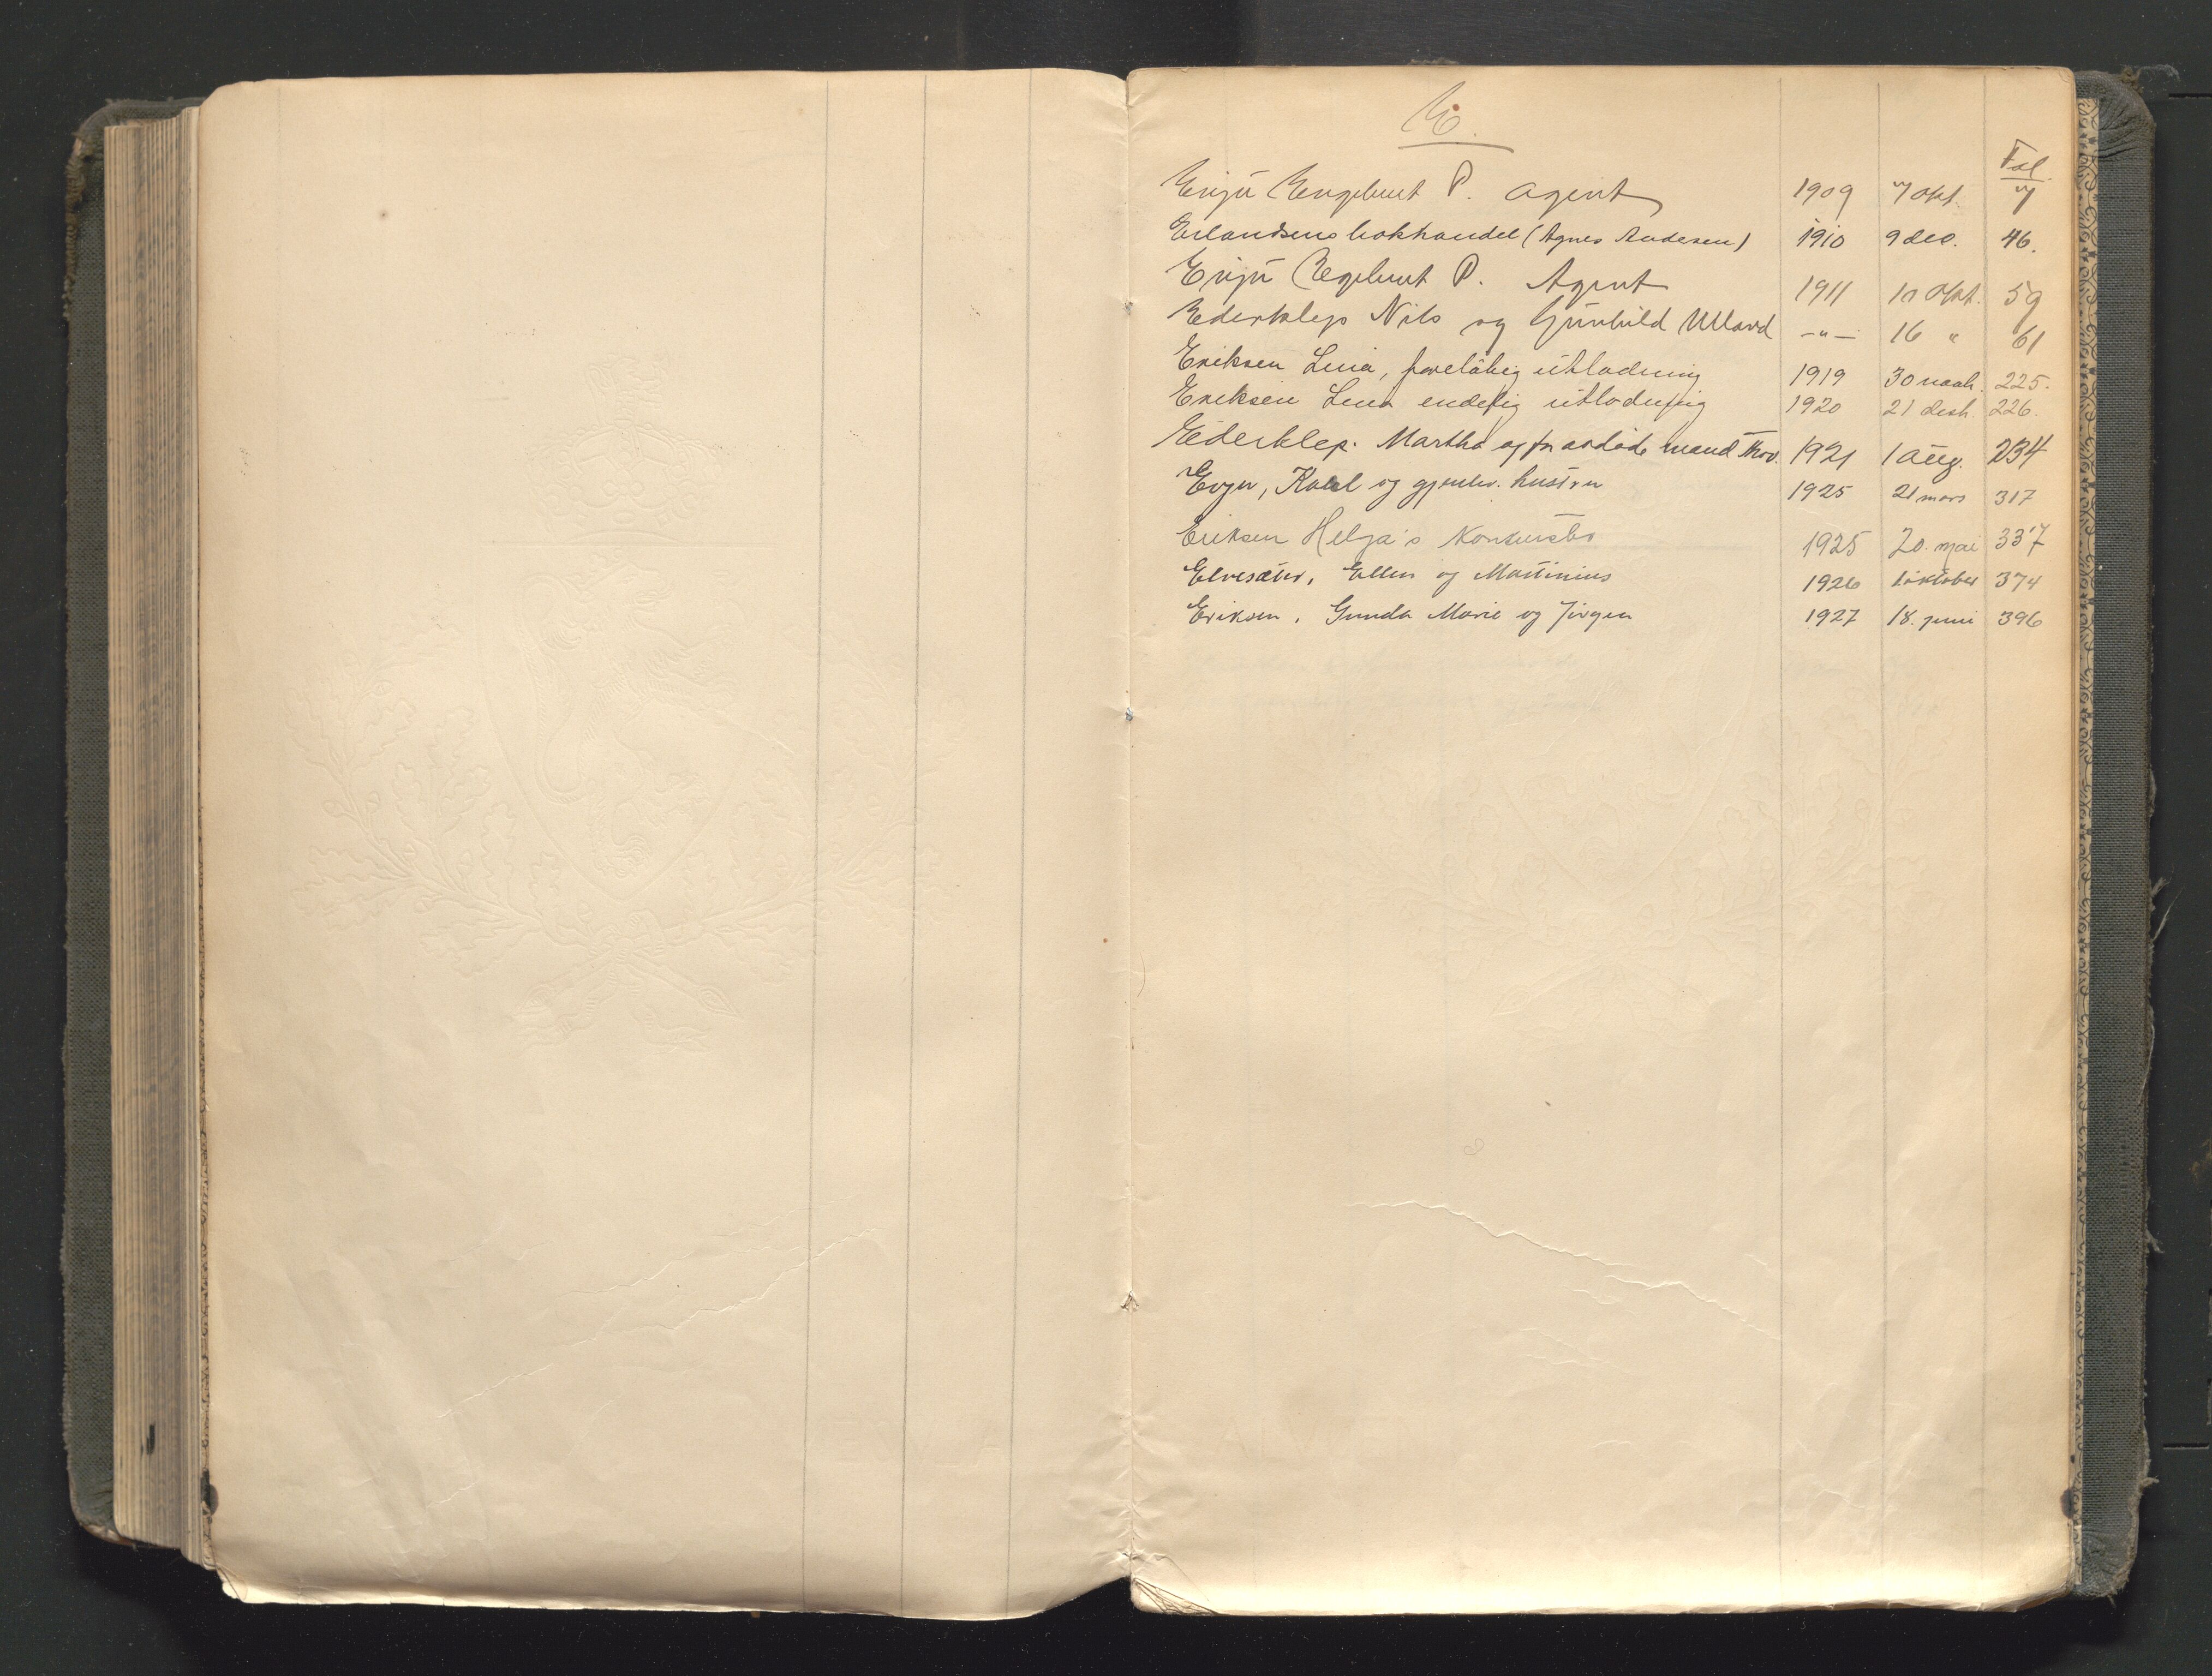 E.
Fol.
Engelbert P. Agent 1909 7 okt. 7
Erlandsens bokhandel (Agnes Andesen) 1910 9 dec. 46.
Egelbert P. Agent 1911 10 okt. 59
Ederklep Nils og Gunhild Ullavd -"- 16 " 61
Eriksen Lina, foreløbig utlodning 1919 30 225.
Eriksen Lina endelig utlodning 1920 21 226.
Ederklep. Martha og før avdøde mand Thov. 1921 1 aug. 234
Evju, Karl og gjenlev. hustru 1925 21 mars 317
Eriksen Helga's Konkursbo 1925 20. mai 337
Elvesæter, Ellen og Martinius 1926 1 oktober 374
Eriksen, Gunda Marie og Jørgen 1927 18. juni 396